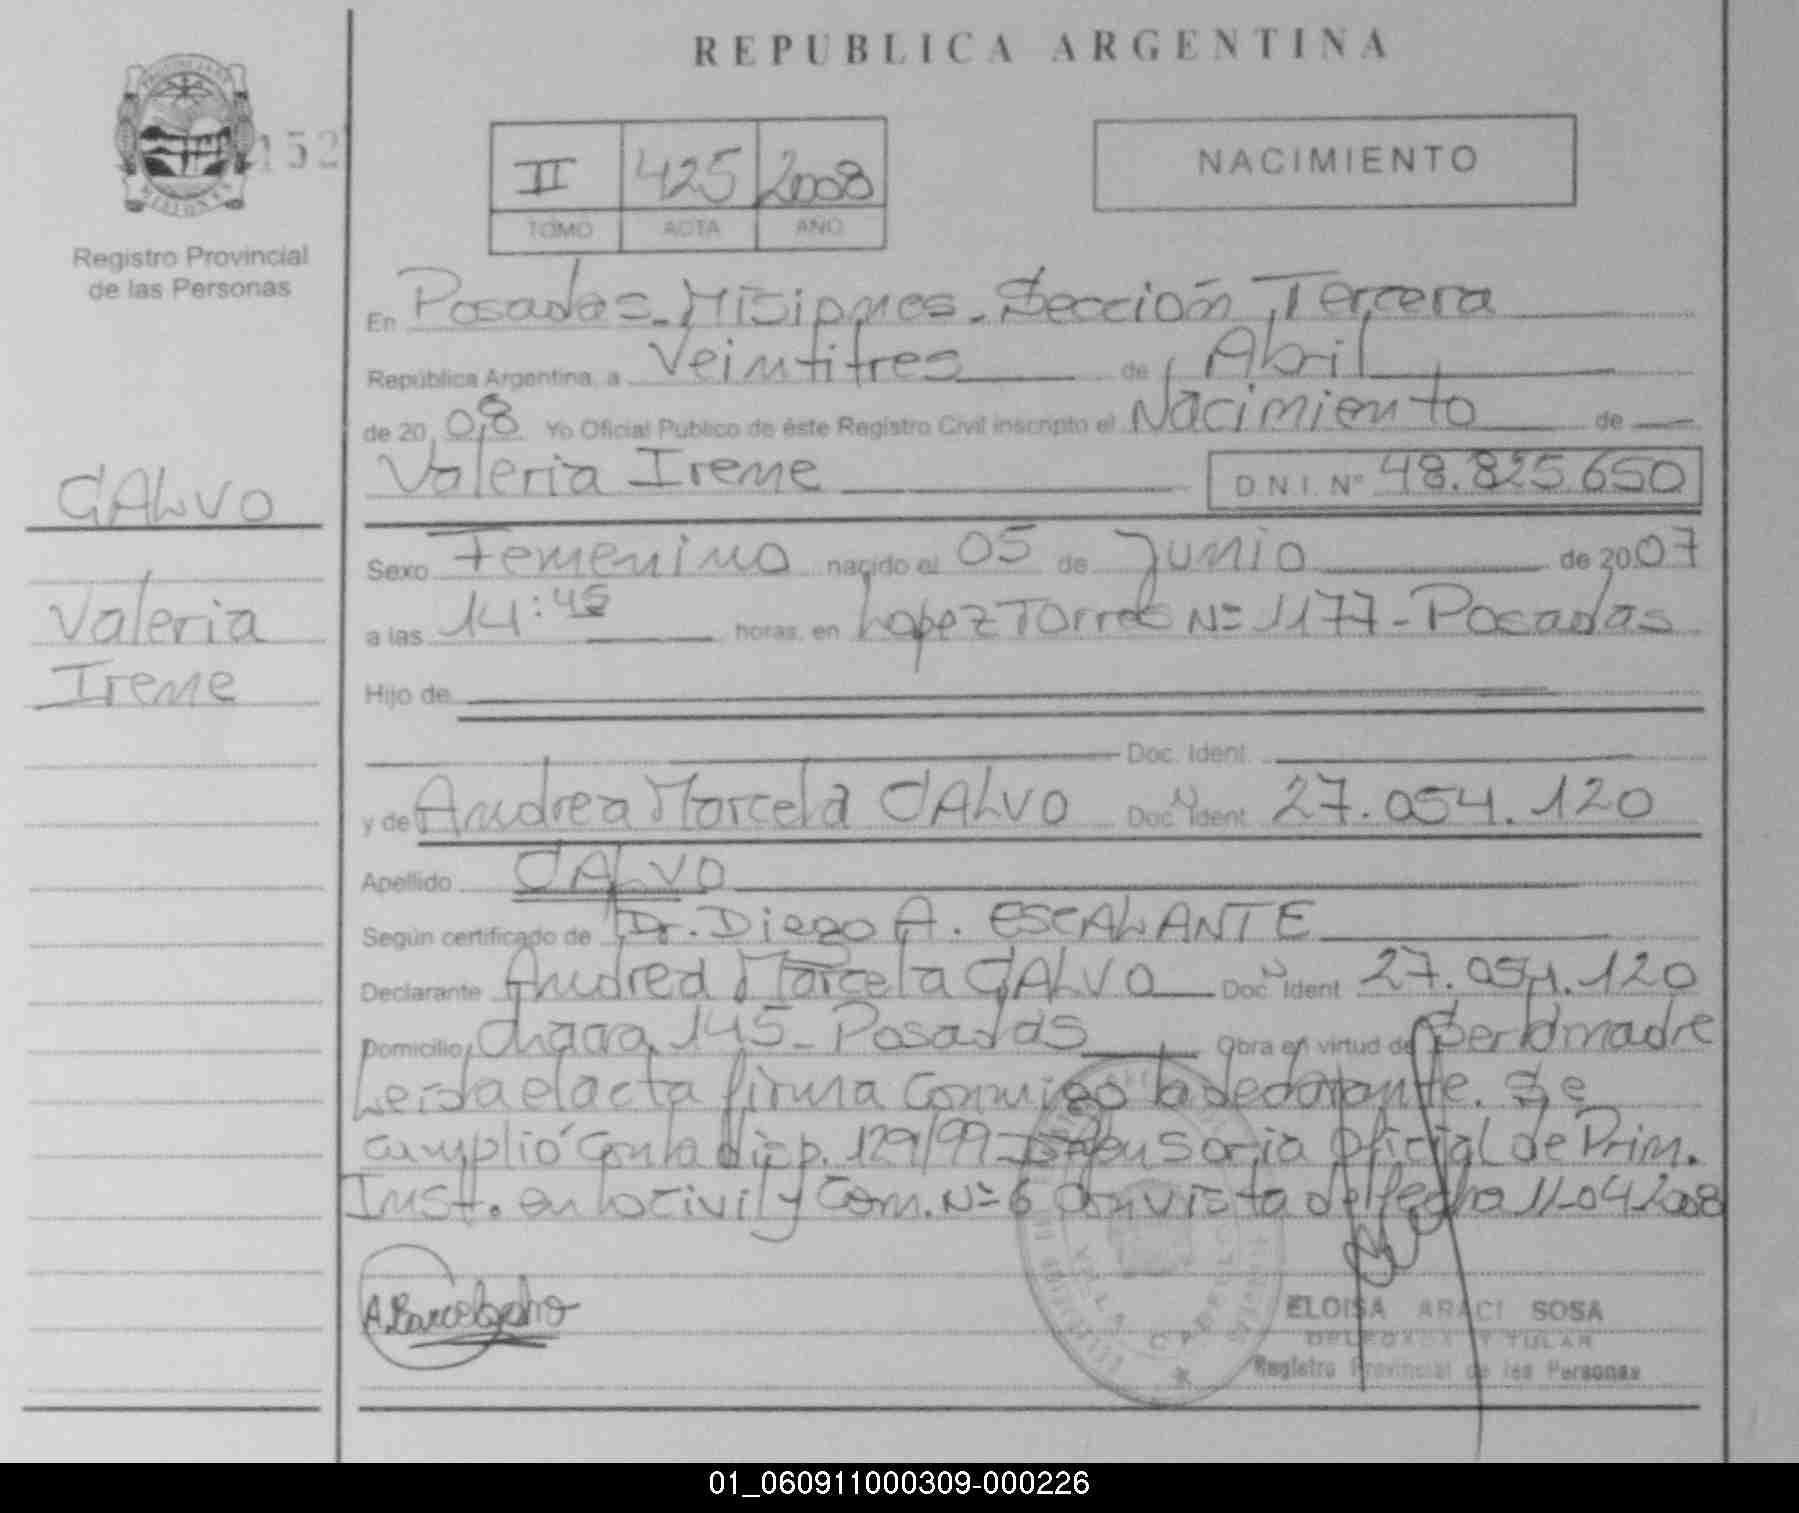 REPUBLICA ARGENTINA
152
II 425 2008
TOMO ACTA AÑO
NACIMIENTO
Registro Provincial
de las Personas
En Posadas_Misiones_Sección Tercera
República Argentina, a Veintitres de Abril
de 20 08 Yo Oficial Público de éste Registro Civil inscripto el Nacimiento de
Valeria Irene D.N.I. Nº 48.825.650
CALVO
Valeria
Irene
Sexo Femenino nacido el 05 de Junio de 2007
a las 14:45 horas, en Lopez Torres Nº 1177-Posadas
Hijo de
Doc. Ident.
y de Andrea Marcela CALVO Doc. Ident. 27.054.120
Apellido CALVO
Según certificado de Dr. Diego A. ESCALANTE
Declarante Andrea Marcela CALVO Doc. Ident 27.054.120
Domicilio Chacra 145_Posadas Obra en virtud de Ser la madre
Leída el acta firma conmigo la declarante. Se
cumplió con la disp. 129/99 Defensoria Oficial de Prim.
Inst. en lo civil y Com. Nº 6 Con vista del fecha 11-04-2008
ELOISA ARACI SOSA
DELEGADA TITULAR
Registro Provincial de las Personas
01_060911000309-000226